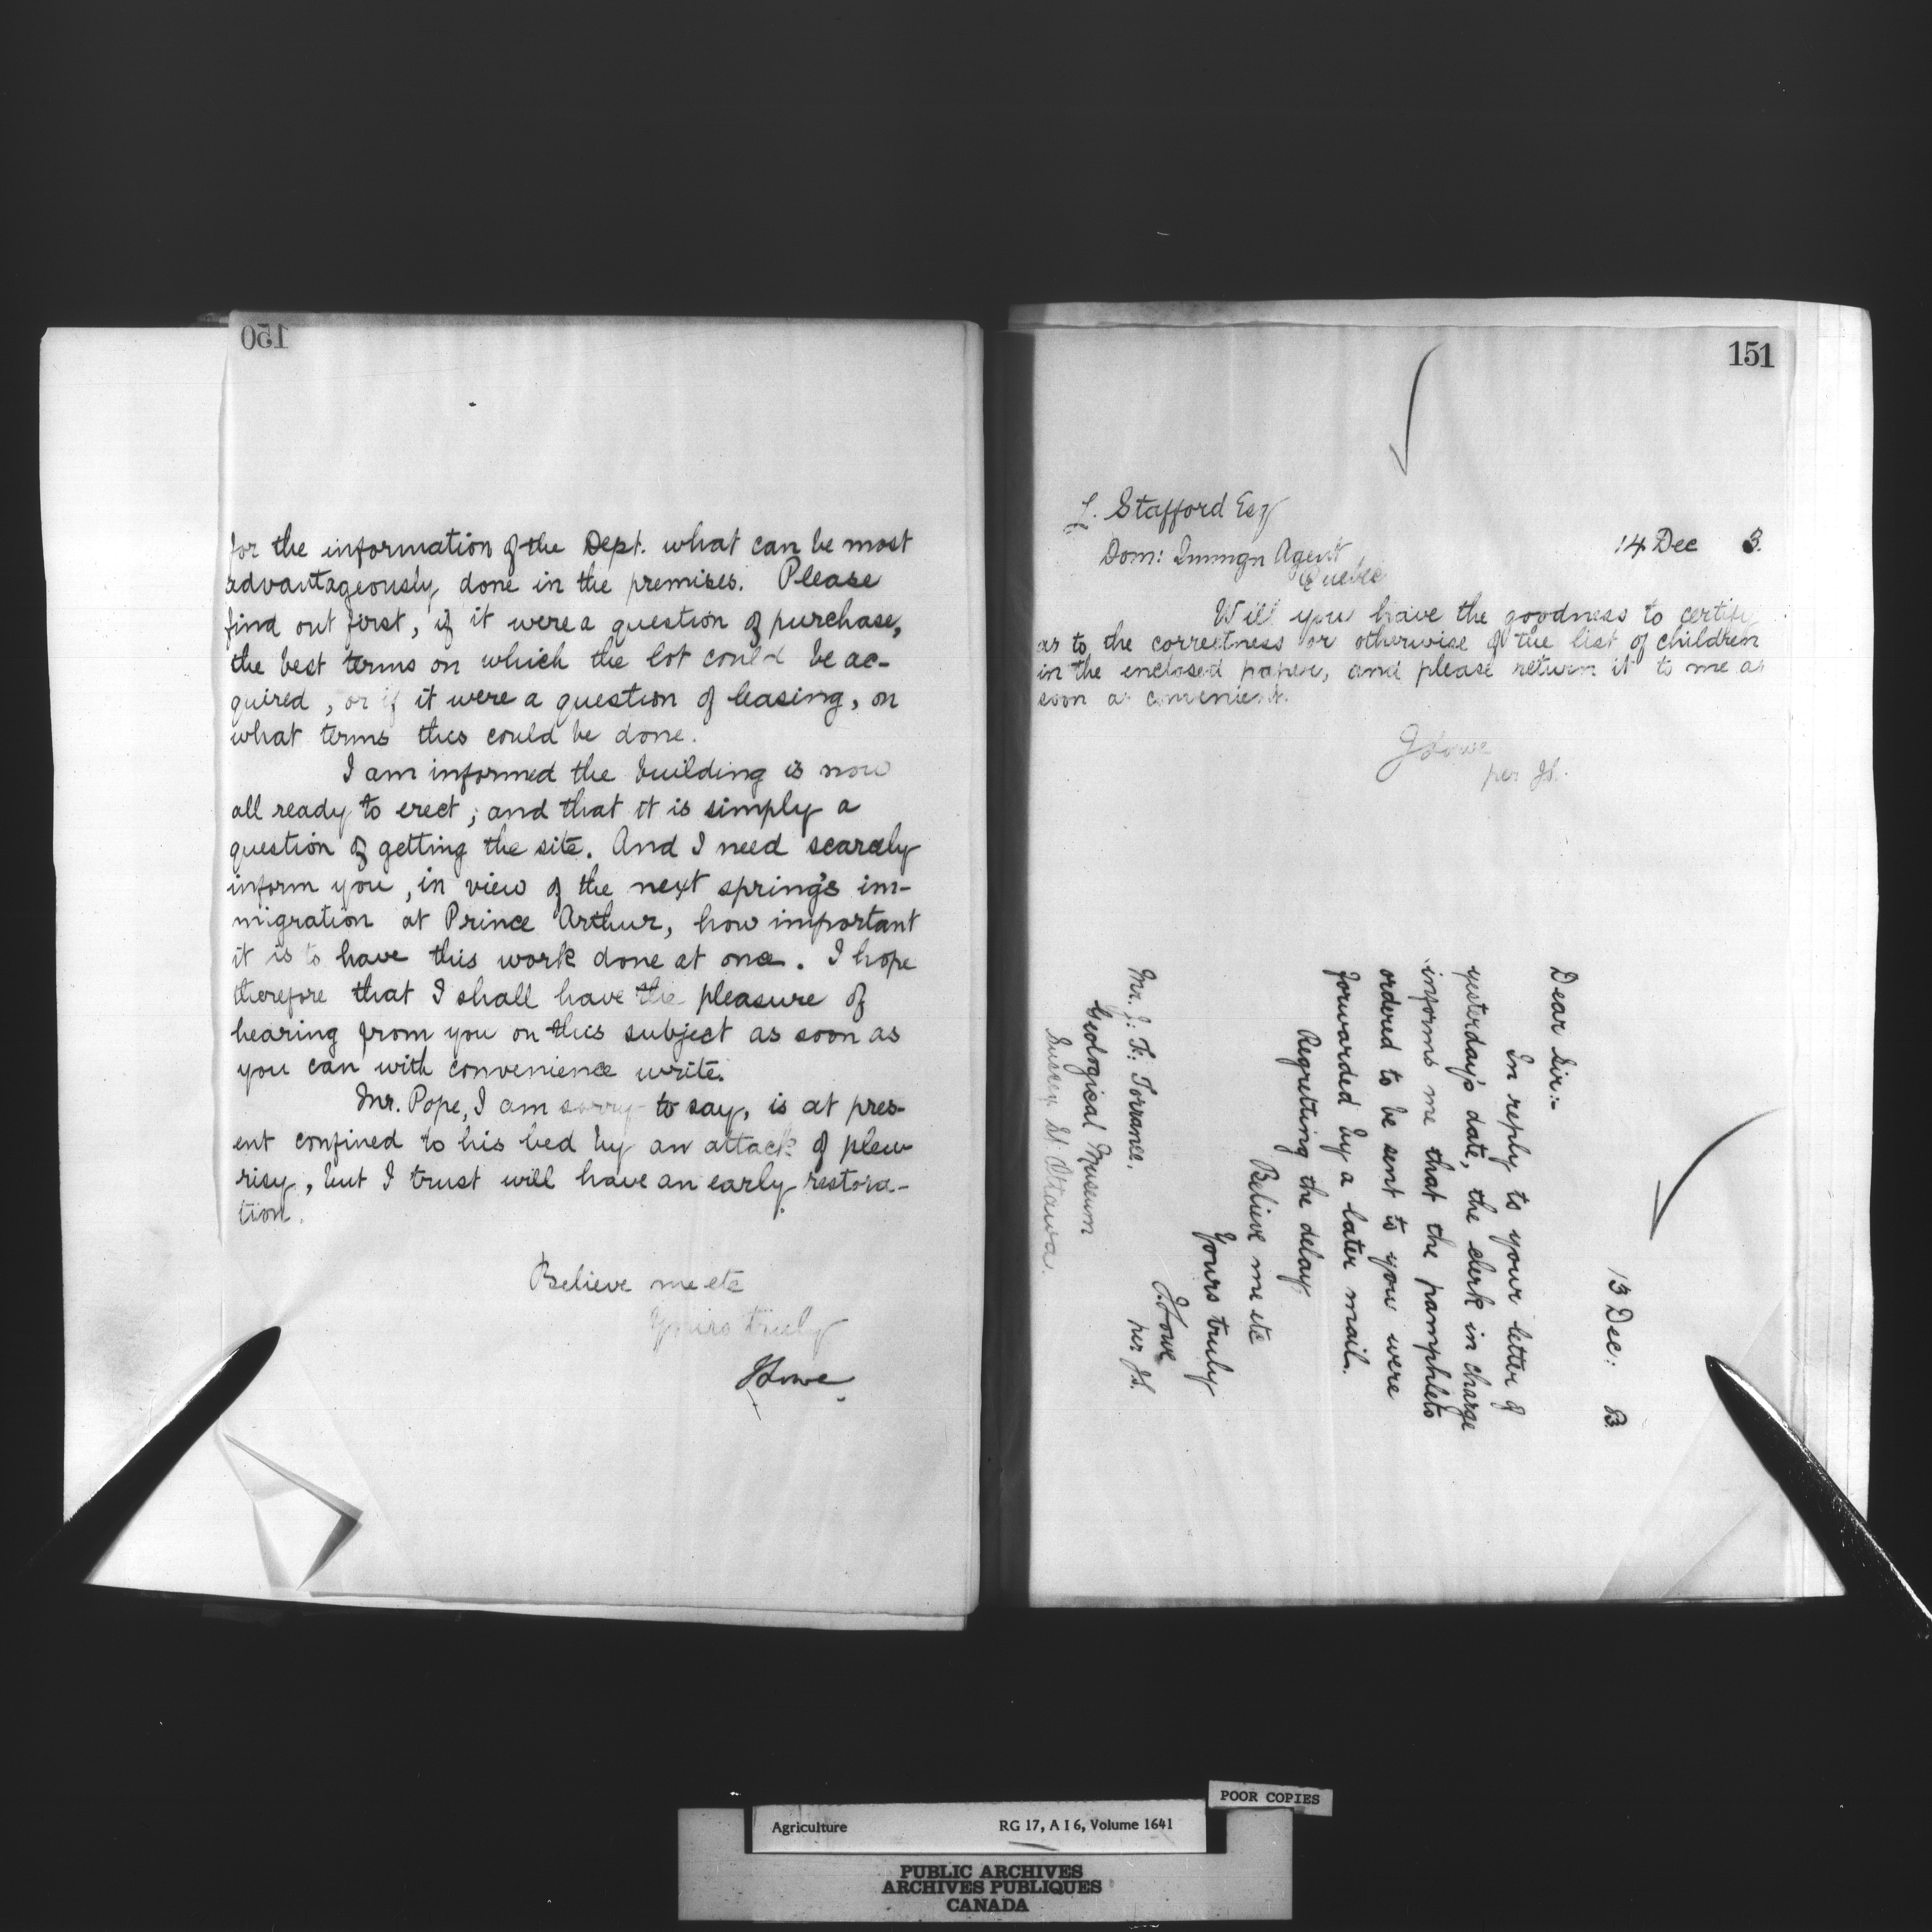 150
for the information of the Dept. what can be most
advantageously done in the premises. Please
find out first, if it were a question of purchase,
the best terms on which the lot could be ac-
quired, or if it were a question of leasing, on
what terms this could be done.
I am informed the building is now
all ready to erect; and that it is simply a
question of getting the site. And I need scarcely
inform you, in view of the next spring's im-
migration at Prince Arthur, how important
it is to have this work done at once. I hope
therefore that I shall have the pleasure of
hearing from you on this subject as soon as
you can with convenience write.
Mr. Pope, I am sorry to say, is at pres-
ent confined to his bed by an attack of pleu
risy, but I trust will have an early restora-
tion.
Believe me etc
Yours truly
JLowe.
151
L. Stafford Esq
14 Dec 3.
Dom: Immgn Agent
Quebec
Will you have the goodness to certify
as to the correctness or otherwise of the list of children
in the enclosed paper, and please return it to me as
soon as convenient.
JLowe
per JS.
13 Dec: 3.
Dear Sir:-
In reply to your letter of
yesterday's date, the clerk in charge
informs me that the pamphlets
ordered to be sent to you were
forwarded by a later mail.
Regretting the delay
Believe me etc
Yours truly
J. Lowe
per JS.
Mr. J. F. Torrance.
Geological Museum
Sussex St. Ottawa.
POOR COPIES
Agriculture RG 17, A I 6, Volume 1641
PUBLIC ARCHIVES
ARCHIVES PUBLIQUES
CANADA